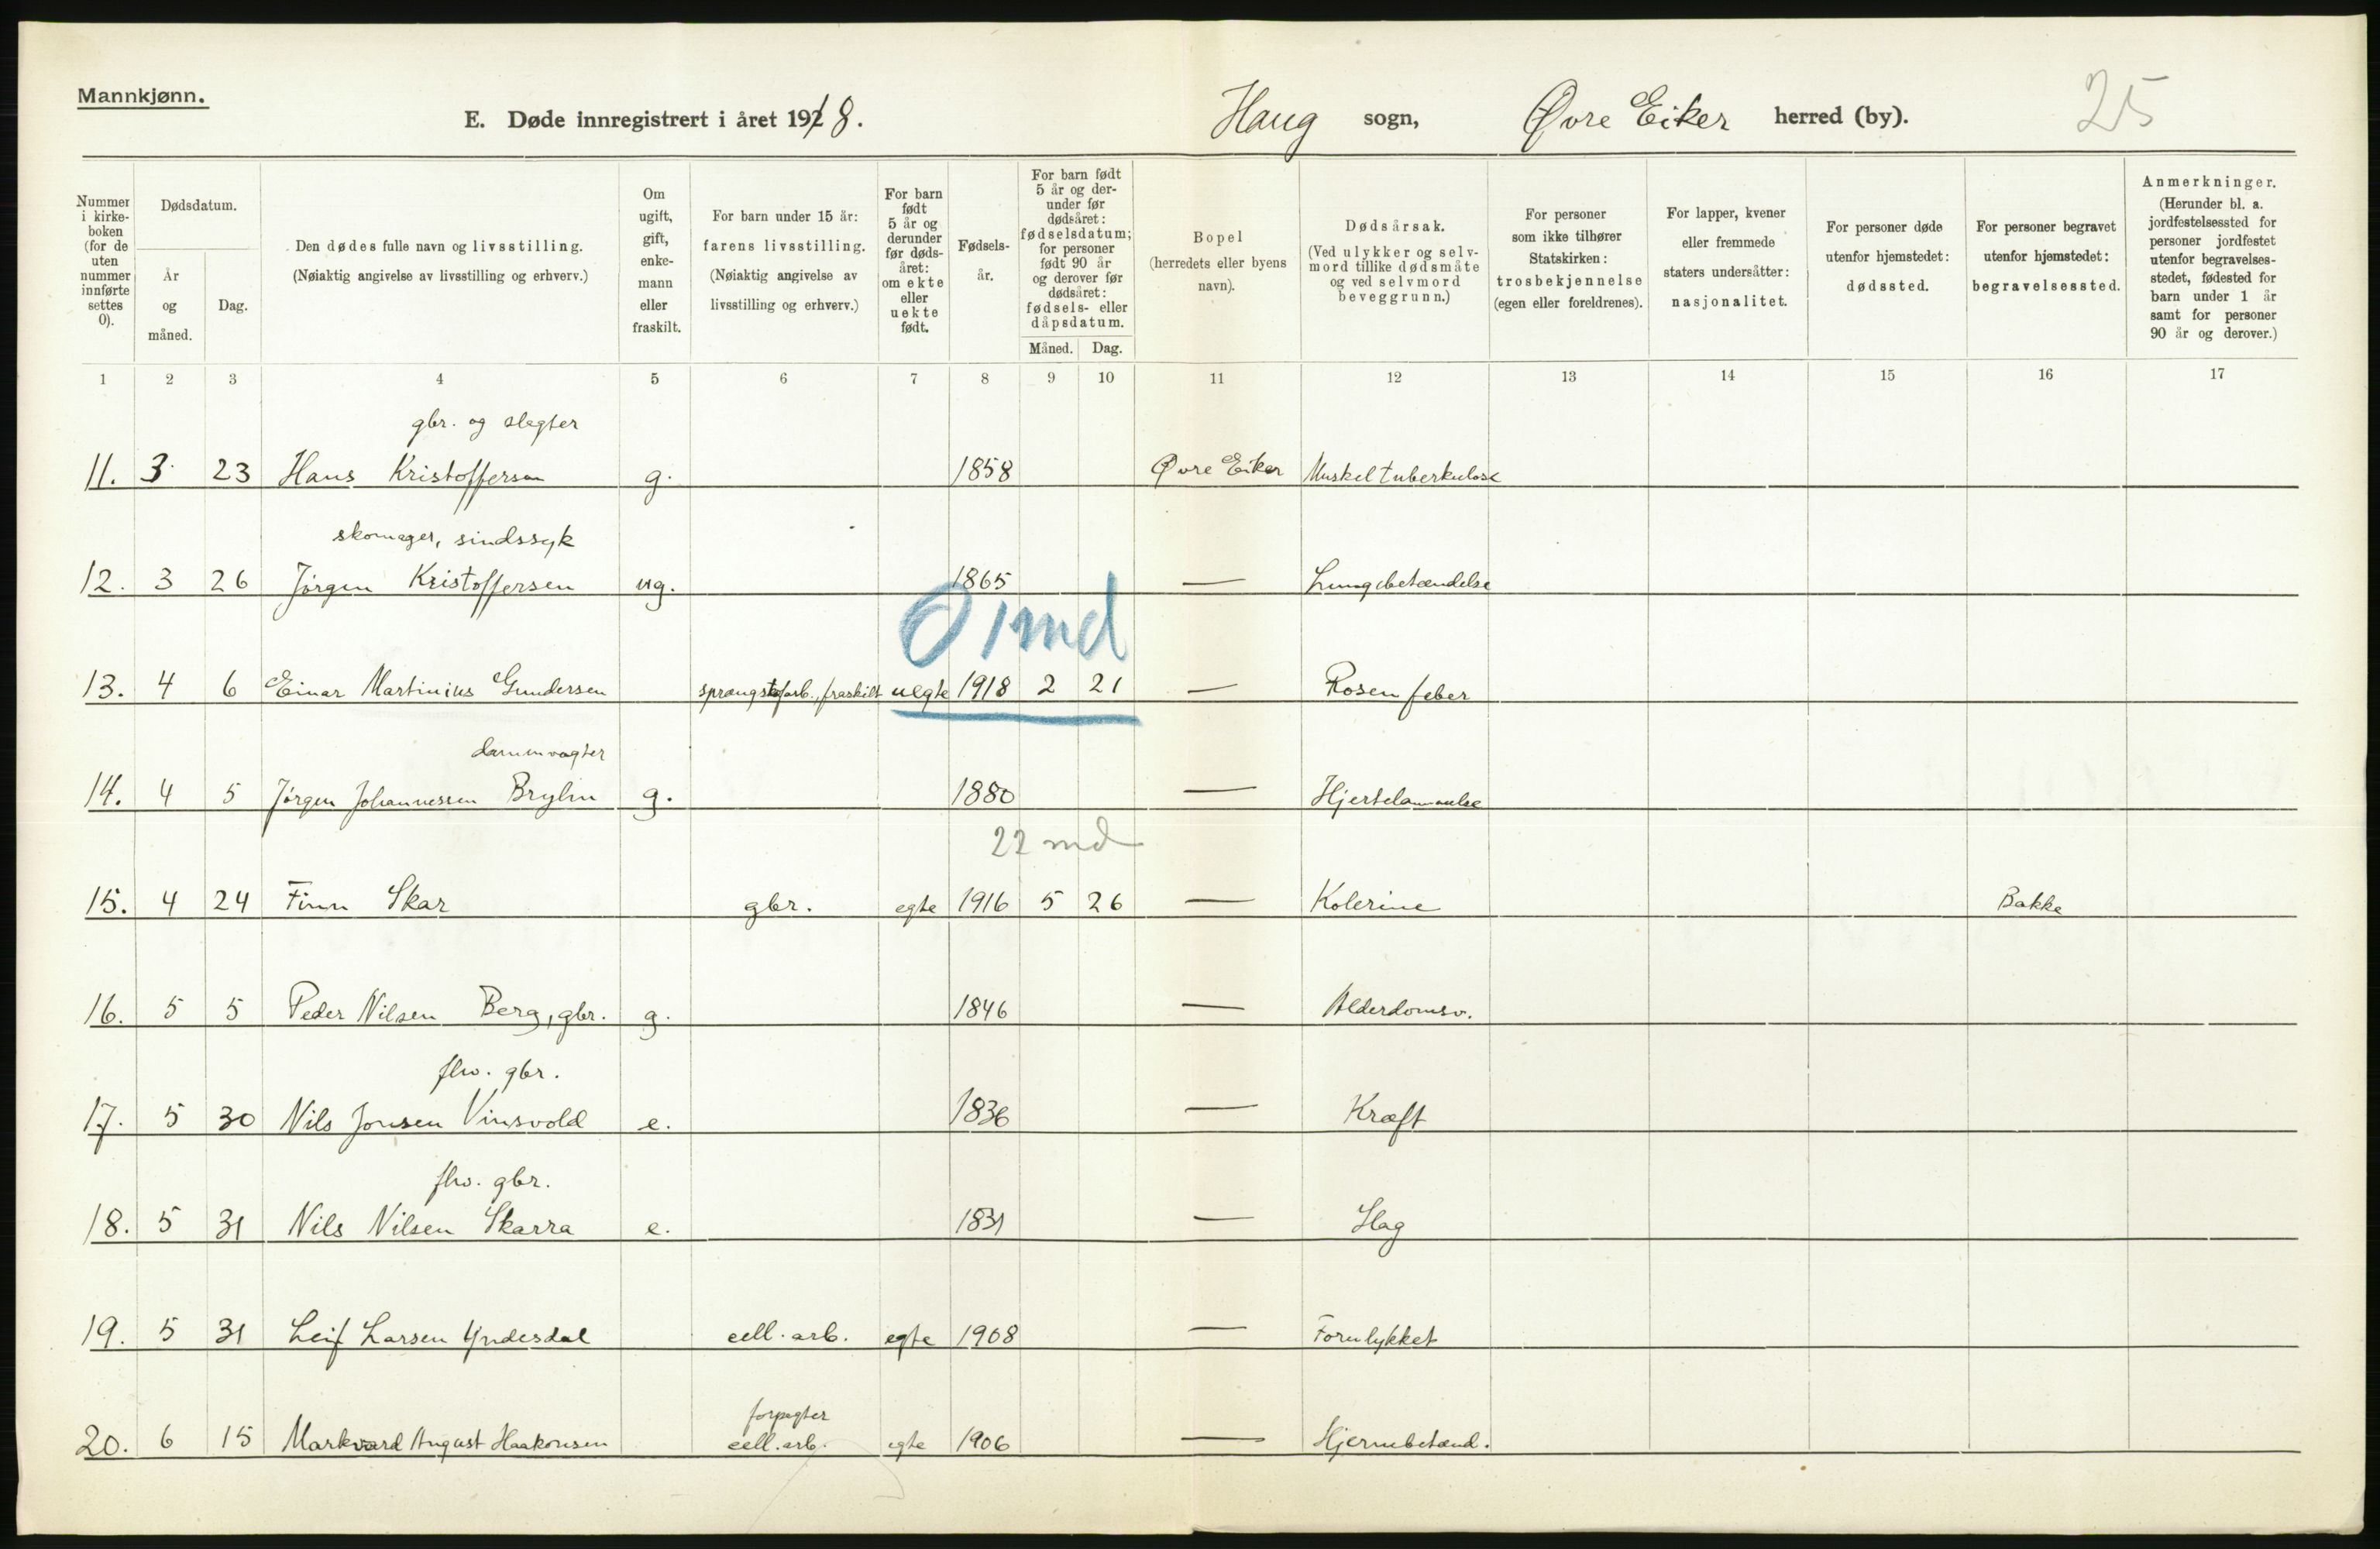 Mannkjønn.
E. Døde innregistrert i året 1918.
Haug sogn, Øvre Eiker herred (by).
25
Nummer i kirke-boken (for de uten nummer innførte settes 0).
Dødsdatum.
År og måned.
Dag.
Den dødes fulle navn og livsstilling.
(Nøiaktig angivelse av livsstilling og erhverv.)
Om ugift, gift, enke-mann eller fraskilt.
For barn under 15 år:
farens livsstilling.
(Nøiaktig angivelse av livsstilling og erhverv.)
For barn født 5 år og derunder før døds-året: om ekte eller uekte født.
Fødsels-år.
For barn født 5 år og der-under før dødsåret: fødselsdatum; for personer født 90 år og derover før dødsåret: fødsels- eller dåpsdatum.
Måned. Dag.
Bopel
(herredets eller byens navn).
Dødsårsak.
(Ved ulykker og selv-mord tillike dødsmåte og ved selvmord beveggrunn.)
For personer som ikke tilhører Statskirken: trosbekjennelse (egen eller foreldrenes).
For lapper, kvener eller fremmede staters undersåtter: nasjonalitet.
For personer døde utenfor hjemstedet: dødssted.
For personer begravet utenfor hjemstedet: begravelsessted.
Anmerkninger.
(Herunder bl. a. jordfestelsessted for personer jordfestet utenfor begravelses-stedet, fødested for barn under 1 år samt for personer 90 år og derover.)
1 2 3 4 5 6 7 8 9 10 11 12 13 14 15 16 17
gbr. og slagter
11. 3 23 Hans Kristoffersen g. 1858 Øvre Eiker Muskeltuberkulose
skomager, sindssyk
12. 3 26 Jörgen Kristoffersen ug. 1865 — Lungebetændelse
0 1 md
13. 4 6 Einar Martinius Gundersen sprængstofarb., fraskilt uegte 1918 2 21 — Rosenfeber
damvogter
14. 4 5 Jörgen Johannessen Brylin g. 1880 — Hjertelammelse
22 md
15. 4 24 Finn Skar gbr. egte 1916 5 26 — Kolerine Bakke
16. 5 5 Peder Nilsen Berg, gbr. g. 1846 — Alderdomsv.
fhv. gbr.
17. 5 30 Nils Jonsen Vinsvold e. 1836 — Kræft
fhv. gbr.
18. 5 31 Nils Nilsen Skarra e. 1831 — Slag
19. 5 31 Leif Larsen Yndesdal cell. arb. egte 1908 — Forulykket
forpagter
20. 6 15 Markvard August Haakonsen cell. arb. egte 1906 — Hjernebetænd.